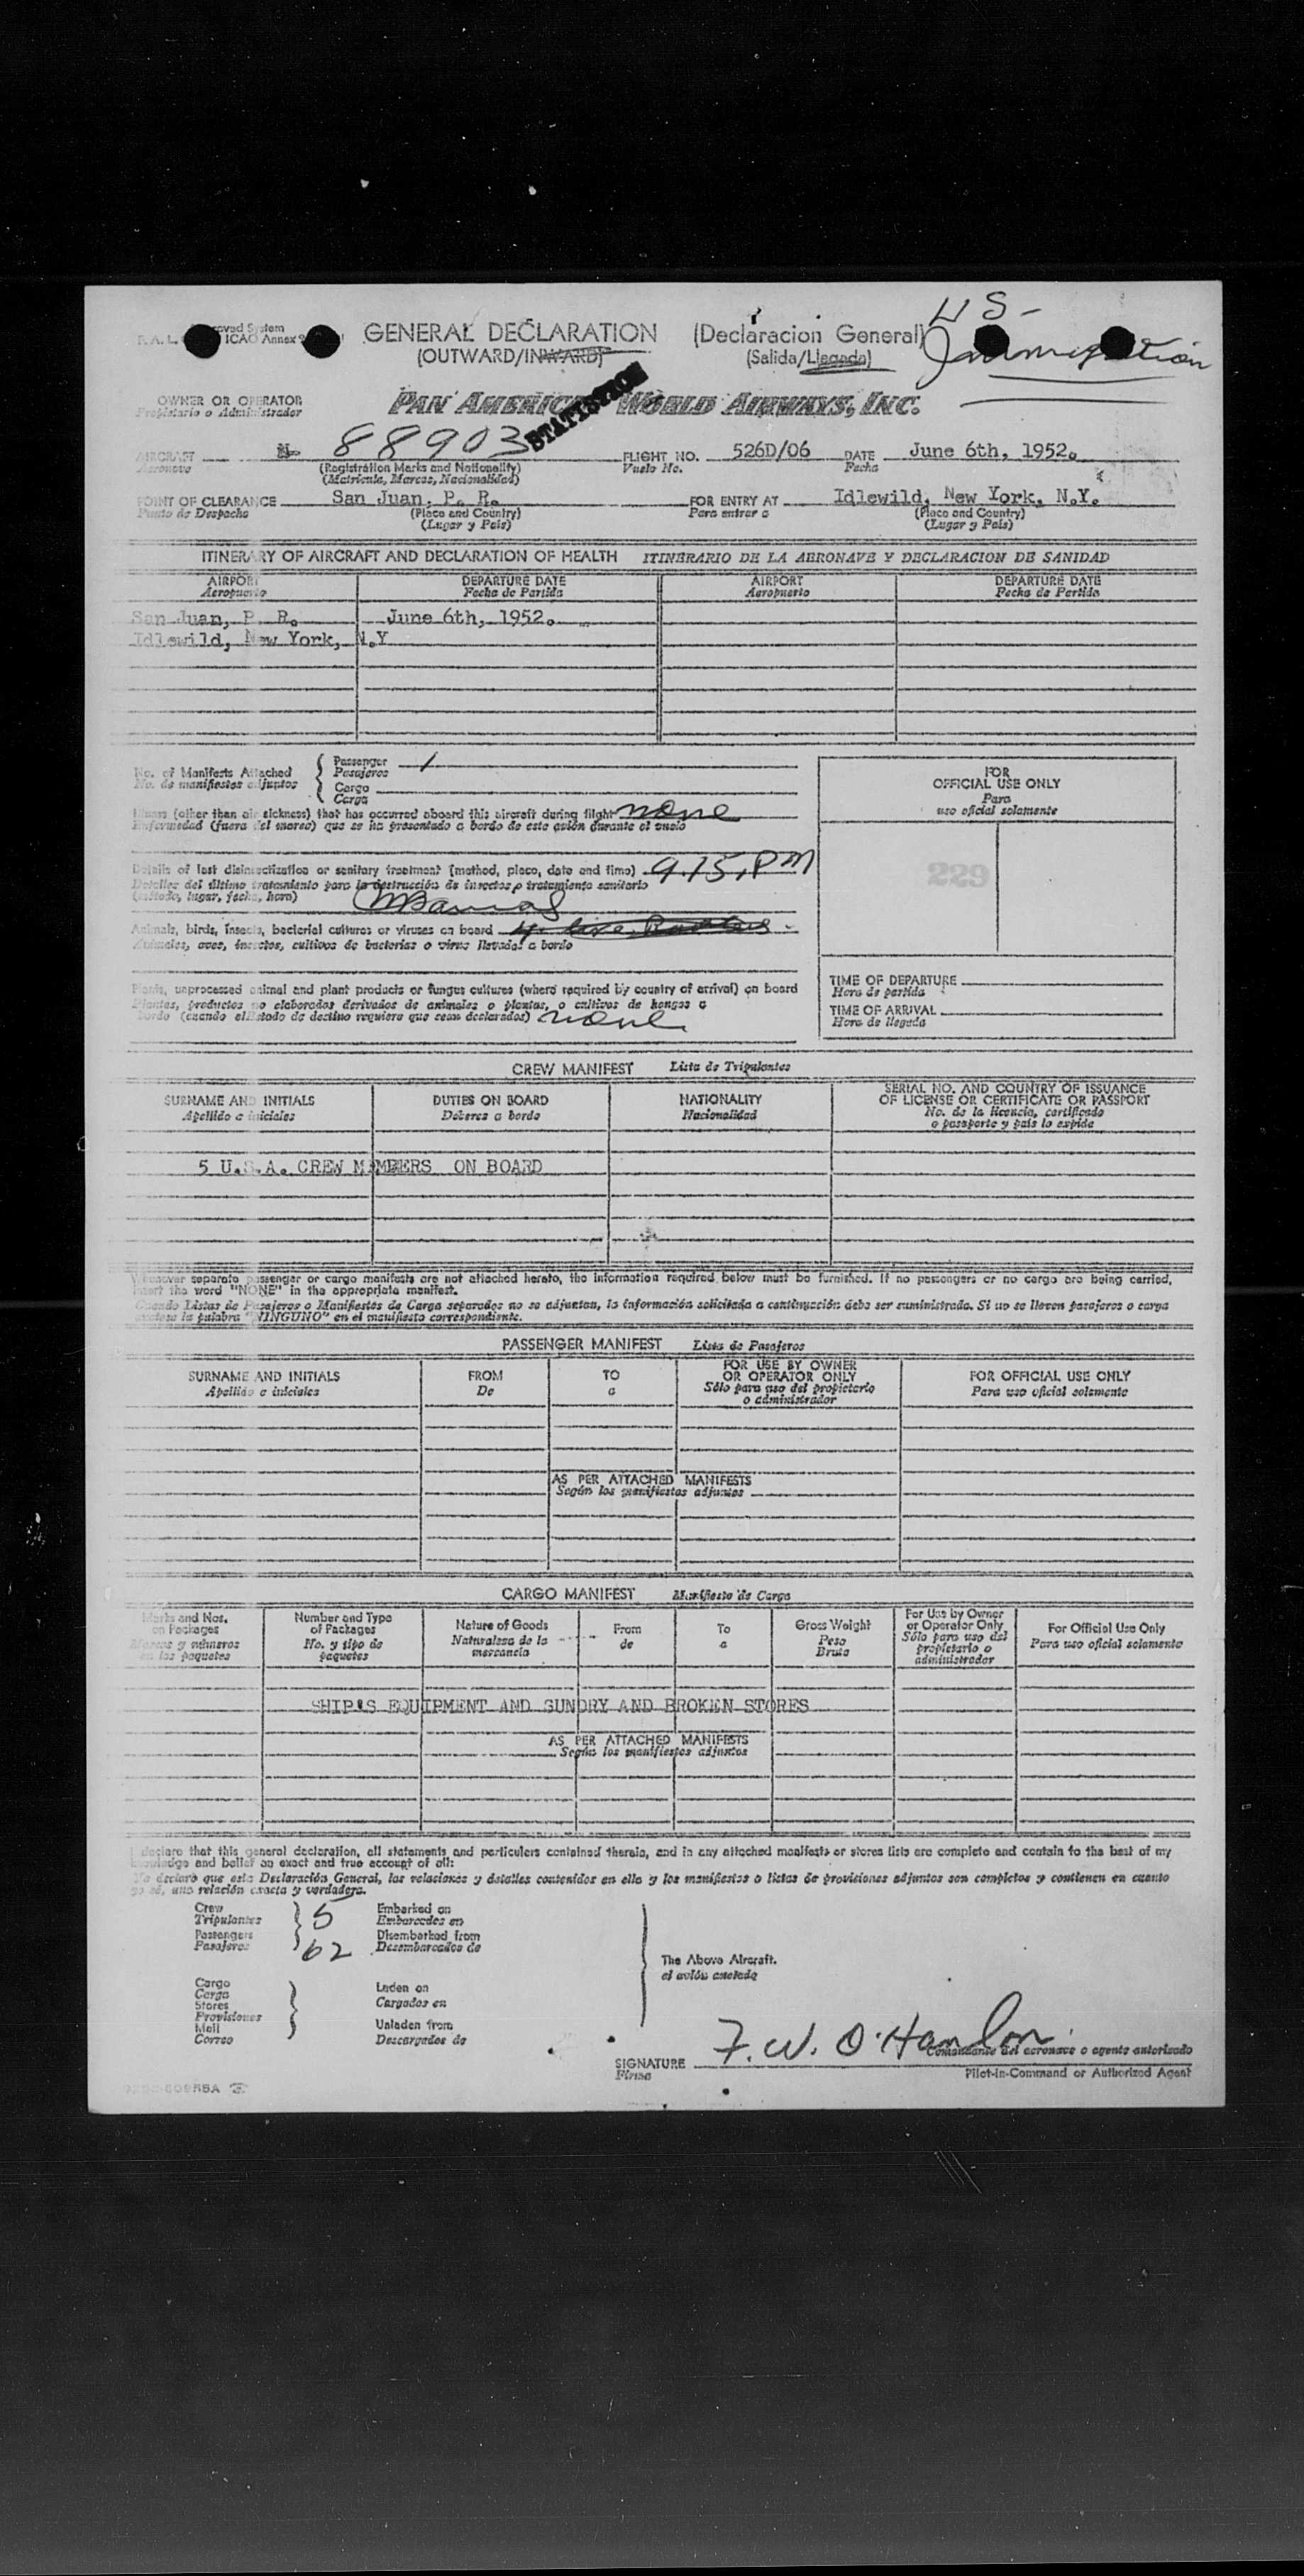 US-
Immigration
F. A. L. Approved System
ICAO Annex 9
GENERAL DECLARATION (Declaracion General)
(OUTWARD/INWARD) (Salida/Llegada)
OWNER OR OPERATOR
Propietario o Administrador
PAN AMERICAN WORLD AIRWAYS, INC.
AIRCRAFT N- 88903 FLIGHT NO. 526D/06 DATE June 6th, 1952.
Aeronave (Registration Marks and Nationality) Vuelo No. Fecha
(Matricula, Marcas, Nacionalidad)
POINT OF CLEARANCE San Juan, P. R. FOR ENTRY AT Idlewild, New York, N.Y.
Punto de Despacho (Place and Country) Para entrar a (Place and Country)
(Lugar y Pais) (Lugar y Pais)
ITINERARY OF AIRCRAFT AND DECLARATION OF HEALTH ITINERARIO DE LA AERONAVE Y DECLARACION DE SANIDAD
AIRPORT DEPARTURE DATE AIRPORT DEPARTURE DATE
Aeropuerto Fecha de Partida Aeropuerto Fecha de Partida
San Juan, P. R. June 6th, 1952.
Idlewild, New York, N.Y
No. of Manifests Attached Passenger 1
No. de manifiestos adjuntos Pasajeros
Cargo
Carga
Illness (other than air sickness) that has occurred aboard this aircraft during flight none
Enfermedad (fuera del mareo) que se ha presentado a bordo de este avión durante el vuelo
Details of last disinsectization or sanitary treatment (method, place, date and time) 9.15, PM
Detalles del último tratamiento para la destrucción de insectos o tratamiento sanitario
(método, lugar, fecha, hora)
Animals, birds, insects, bacterial cultures or viruses on board
Animales, aves, insectos, cultivos de bacterias o virus llevados a bordo
Plants, unprocessed animal and plant products or fungus cultures (where required by country of arrival) on board
Plantas, productos no elaborados derivados de animales o plantas, o cultivos de hongos a
bordo (cuando el Estado de destino requiera que sean declarados) none
FOR
OFFICIAL USE ONLY
Para
uso oficial solamente
229
TIME OF DEPARTURE
Hora de partida
TIME OF ARRIVAL
Hora de llegada
CREW MANIFEST Lista de Tripulantes
SURNAME AND INITIALS DUTIES ON BOARD NATIONALITY SERIAL NO. AND COUNTRY OF ISSUANCE
Apellido e iniciales Deberes a bordo Nacionalidad OF LICENSE OR CERTIFICATE OR PASSPORT
No. de la licencia, certificado
o pasaporte y país lo expide
5 U.S.A. CREW MEMBERS ON BOARD
Whenever separate passenger or cargo manifests are not attached hereto, the information required below must be furnished. If no passengers or no cargo are being carried,
insert the word "NONE" in the appropriate manifest.
Cuando Listas de Pasajeros o Manifiestos de Carga separados no se adjuntan, la información solicitada a continuación debe ser suministrada. Si no se llevan pasajeros o carga
anótese la palabra "NINGUNO" en el manifiesto correspondiente.
PASSENGER MANIFEST Lista de Pasajeros
SURNAME AND INITIALS FROM TO FOR USE BY OWNER OR OPERATOR ONLY FOR OFFICIAL USE ONLY
Apellido e iniciales De a Sólo para uso del propietario o administrador Para uso oficial solamente
AS PER ATTACHED MANIFESTS
Según los manifiestos adjuntos
CARGO MANIFEST Manifiesto de Carga
Marks and Nos. on Packages Number and Type of Packages Nature of Goods From To Gross Weight For Use by Owner or Operator Only For Official Use Only
Marcas y números en los paquetes No. y tipo de paquetes Naturaleza de la mercancía de a Peso Bruto Sólo para uso del propietario o administrador Para uso oficial solamente
SHIP'S EQUIPMENT AND SUNDRY AND BROKEN STORES
AS PER ATTACHED MANIFESTS
Según los manifiestos adjuntos
I declare that this general declaration, all statements and particulars contained therein, and in any attached manifests or stores lists are complete and contain to the best of my
knowledge and belief an exact and true account of all:
Yo declaro que esta Declaración General, las relaciones y detalles contenidos en ella y los manifiestos o listas de provisiones adjuntos son completos y contienen en cuanto
yo sé, una relación exacta y verdadera.
Crew 5 Embarked on
Tripulantes Embarcados en
Passengers 62 Disembarked from
Pasajeros Desembarcados de
The Above Aircraft.
el avión anotado
Cargo
Carga Laden on
Stores Cargados en
Provisiones
Mail Unladen from
Correo Descargados de
SIGNATURE F. W. O'Hanlon
Firma Comandante del aeronave o agente autorizado
Pilot-in-Command or Authorized Agent